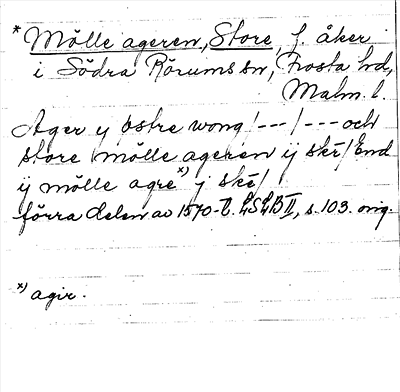 * Mölle ageren, Store, f. åker
i Södra Rörums sn, Frosta hd,
Malm. l.
Ager y östre wong /---/---och
store mölle ageren ij skē/End
ij mölle agre x) j skē/
förra delen av 1570-t. LSLB II, s. 103. orig.
x) agir.